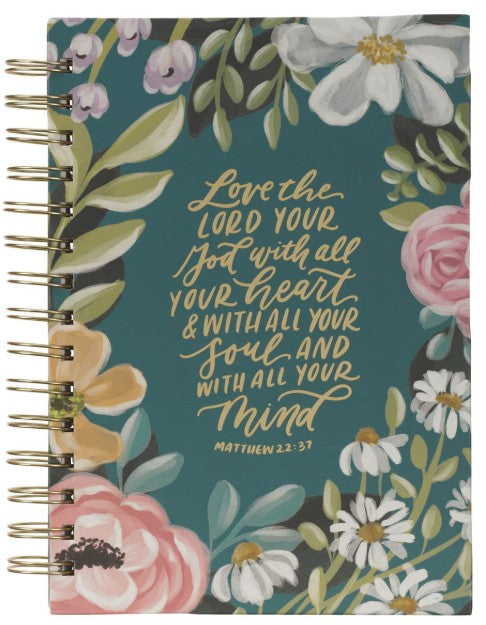 Love the
LORD YOUR
God with all
YOUR heart
& WITH ALL YOUR
Soul AND
WITH ALL YOUR
Mind
MATTHEW 22:37